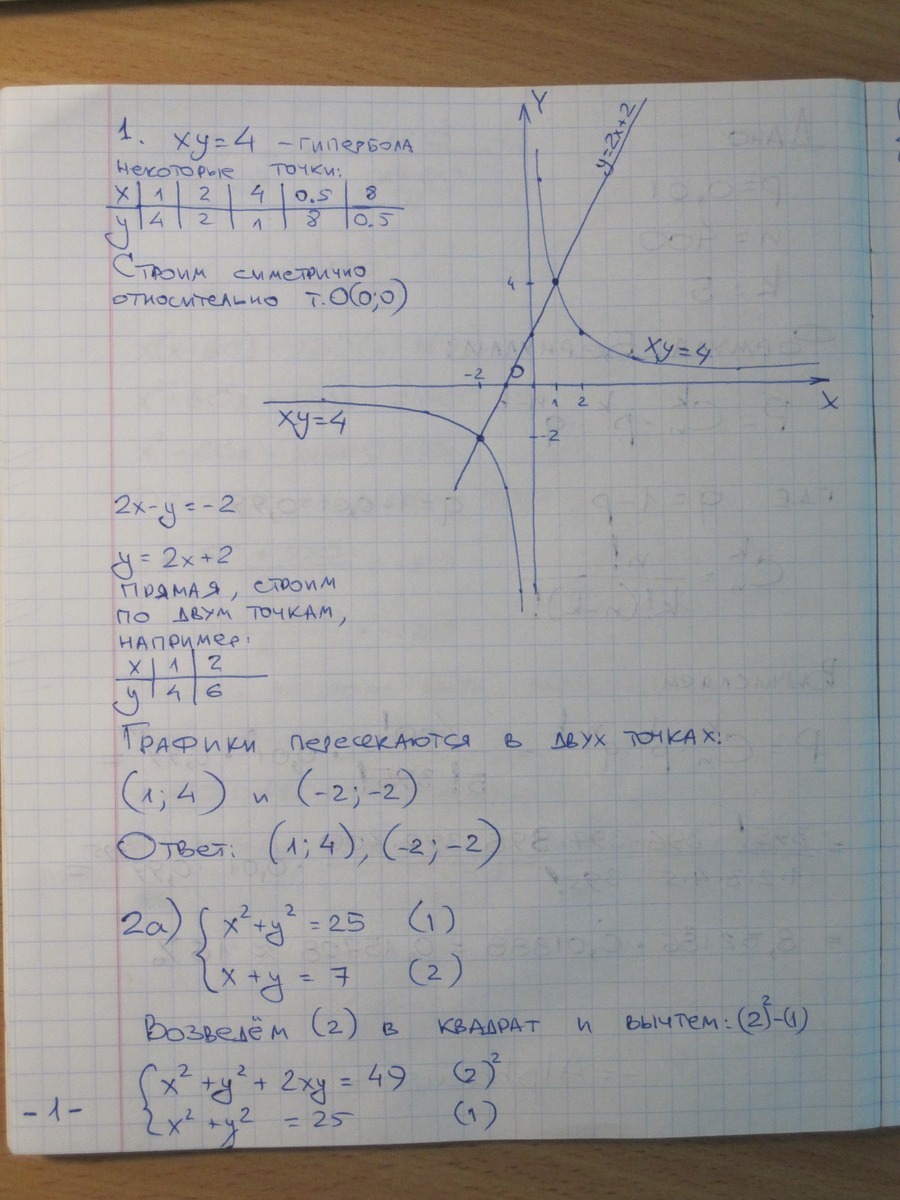 1. xy=4 – гипербола
Некоторые точки:
x | 1 | 2 | 4 | 0.5 | 8
y | 4 | 2 | 1 | 8 | 0.5
Строим симетрично
относительно т.О(0;0)
Y
y=2x+2
4
xy=4
-2
O
1
2
X
xy=4
-2
2x-y=-2
y=2x+2
Прямая, строим
по двум точкам,
например:
x | 1 | 2
y | 4 | 6
Графики пересекаются в двух точках:
(1;4) и (-2;-2)
Ответ: (1;4), (-2;-2)
2а) { x²+y²=25 (1)
x+y=7 (2)
Возведём (2) в квадрат и вычтем: (2)²-(1)
{ x²+y²+2xy=49 (2)²
x²+y² =25 (1)
-1-